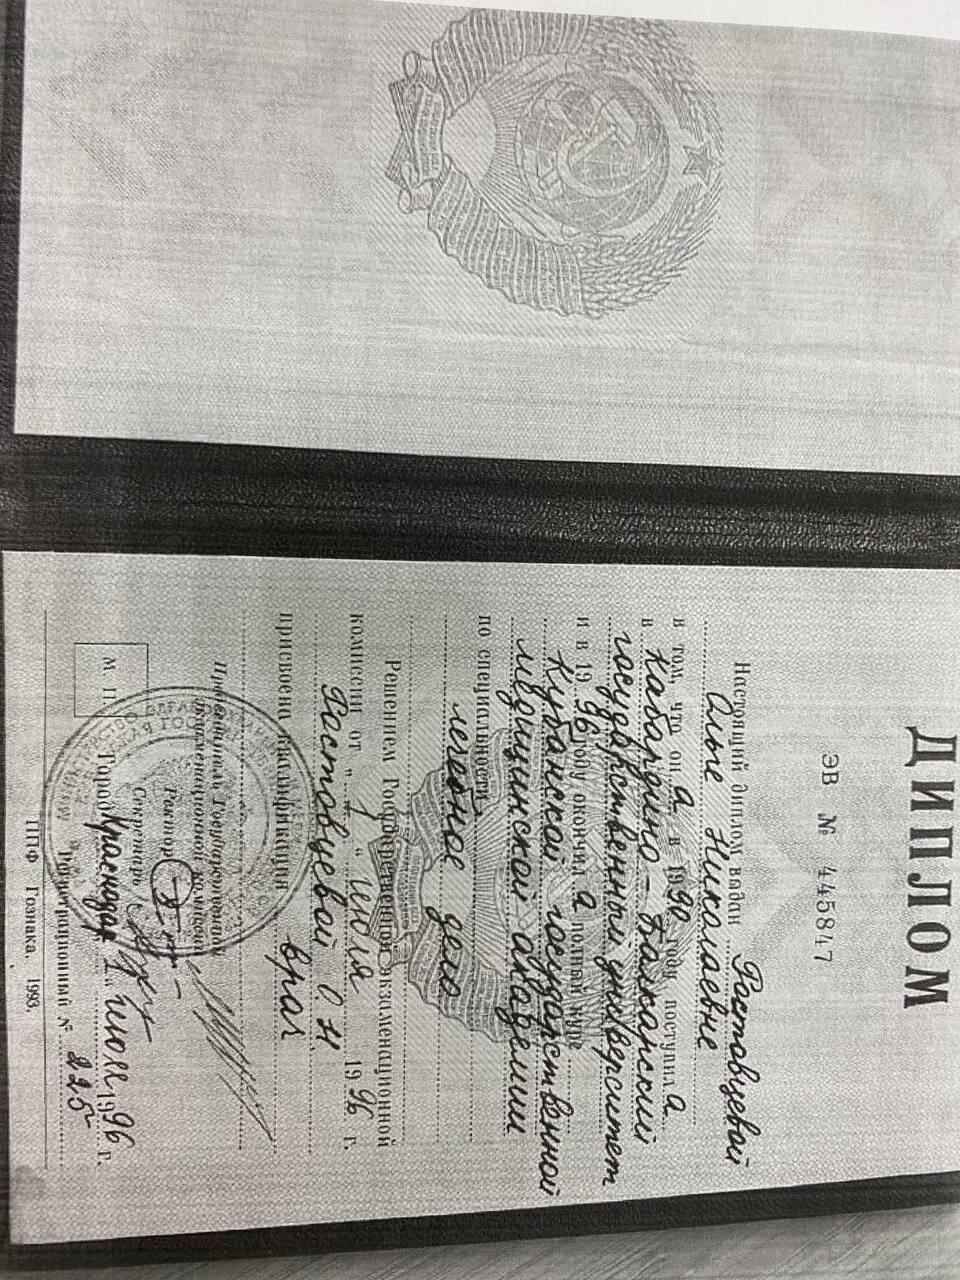 ДИПЛОМ
ЭВ № 445847
Настоящий диплом выдан Ростовцевой
Ольге Николаевне
в том, что он а в 1990 году поступил а
в Кабардино-Балкарский
государственный университет
и в 1996 году окончил а полный курс
Кубанской государственной
медицинской академии
по специальности
лечебное дело
Решением Государственной экзаменационной
комиссии от "1" июля 1996 г.
Ростовцевой О.Н
присвоена квалификация врач
Председатель Государственной
экзаменационной комиссии
Ректор
Секретарь
М. П.
Город Краснодар 1 июля 1996 г.
Регистрационный № 225
ППФ Гознака. 1993.